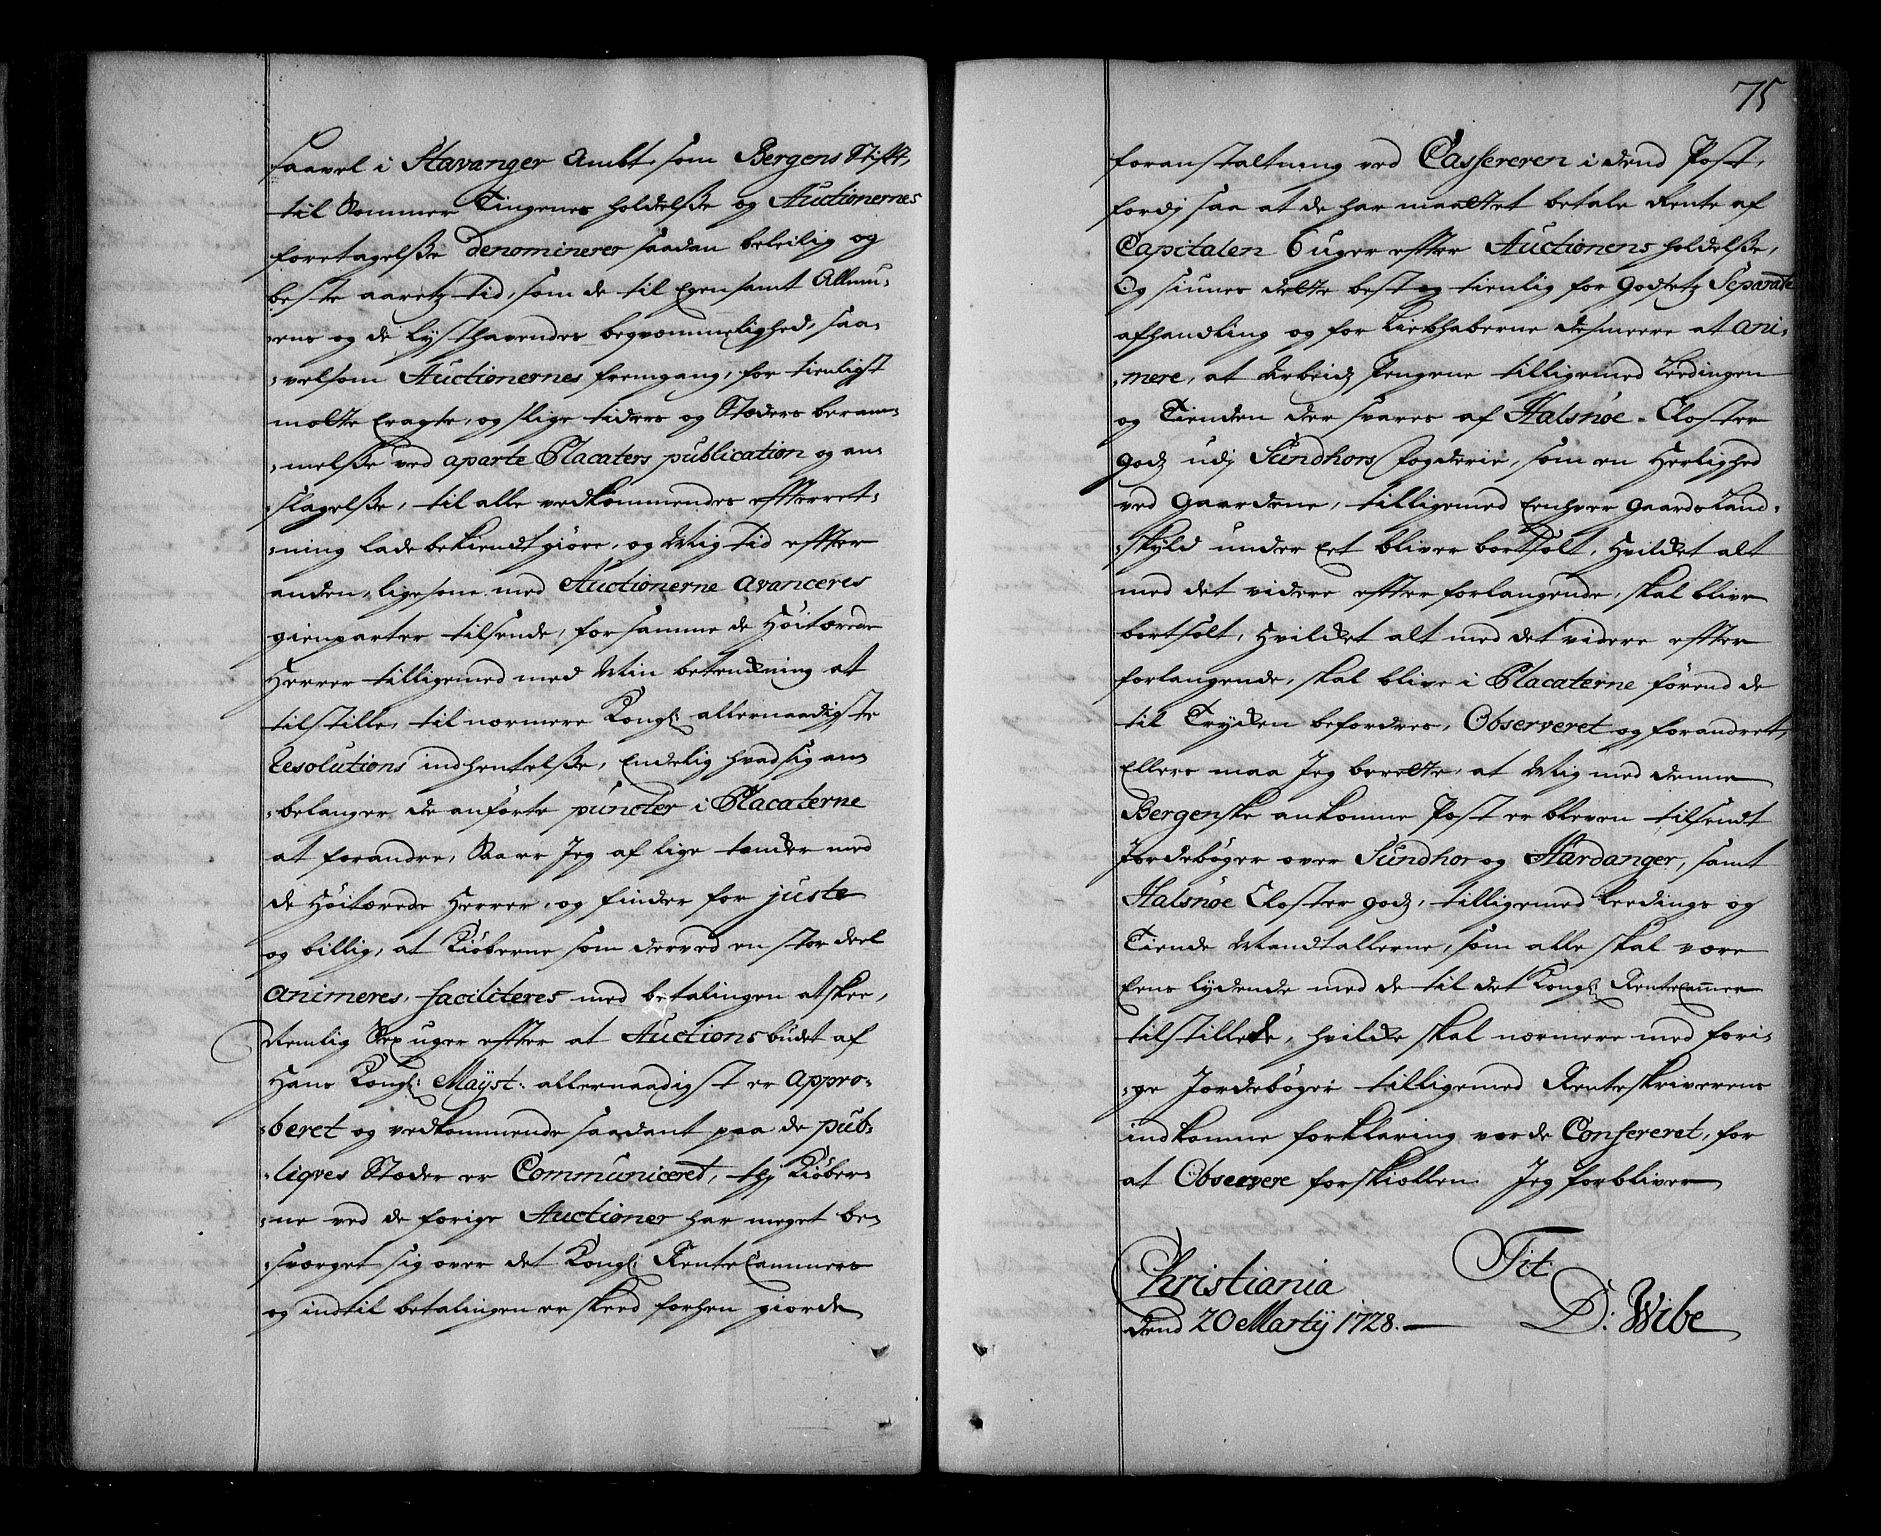 saavel i Stavanger Ambt som Bergens Stift,
til Sommer Tingenes holdelße og Auctionernes
foretagelße denominerer saadan beleilig og
beste aaretz tid, som de til Egen samt Allmu-
-ens og de lysthavendes beqvommelighed, saa-
-velsom Auctionernes fremgang, for tienligst
motte Eragte, og slige tiders og Stæders beram-
-melße ved aparte Placaters publication og an-
-slagelße, til alle vedkommendes effterret-
-ning lade bekiendtgiøre, og Mig tid effter
anden, ligesom med Auctionerne avanceres
gienparter tilsende, for samme de Høitærede
Herrer tilligemed med Min betenckning at
tilstille, til nærmere Kongl: allernaadigste
Resolutions indhentelße, Endelig hvad sig an-
-belanger de anførte puncter i Placaterne
at forandre, Da er Jeg af lige tancker med
de Høitærede Herrer, og finder for juste
og billig, at Kiøberne som derved en stor deel
animeres, faciliteres med betalingen at skee,
Nemlig Sex uger effter at Auctions budet af
Hans Kongl: Mayst: allernaadigst er appro-
-beret og vedkommende saadant paa de pub-
-liqves Stæder er Communiceret, thj Kiøber-
-ne ved de forige Auctioner har meget be-
-sværget sig over det Kongl: RenteCammers
og indtil betalingen er skeed forhen giorde
75
foranstaltning ved Cassereren i dend Post,
fordj saa at de har maattet betale Rente af
Capitalen 6 uger effter Auctionens holdelße,
Og siunes dette best og tienlig for Godsetz Separate
afhandling og for Liebhaberne desmeere at ani-
-mere, at Arbeidz Pengene tilligemed Leedingen
og Tienden der svares af Halsnøe-Closter
godz udj Sundhors Fogderie, som en Herlighed
ved Gaardene, tilligemed Eenhver Gaards Land-
-skyld under Eet bliver bortsolt, Hvilcket alt
med det videre effter forlangende, skal blive
bortsolt, Hvilcket alt med det videre effter
forlangende, skal blive i Placaterne førend de
til Trycken befordres, Observeret og forandret,
Ellers maa Jeg berette, at Mig med denne
Bergenske ankomne Post er bleven tilsendt
Jordebøger over Sundhor og Hardanger, samt
Halsnøe Closter godz, tilligemed Leedings og
Tiende Mandtallerne, som alle skal være
Eens lydende med de til det Kongl: RenteCamer
tilstillede, hvilcke skal nærmere med fori-
-ge Jordebøger tilligemed Renteskriverens
indkomne forklaring vorde Confereret, for
at Observere forskiællen. Jeg forbliver
Tit:
Christiania
dend 20 Martij 1728.
D: Wibe